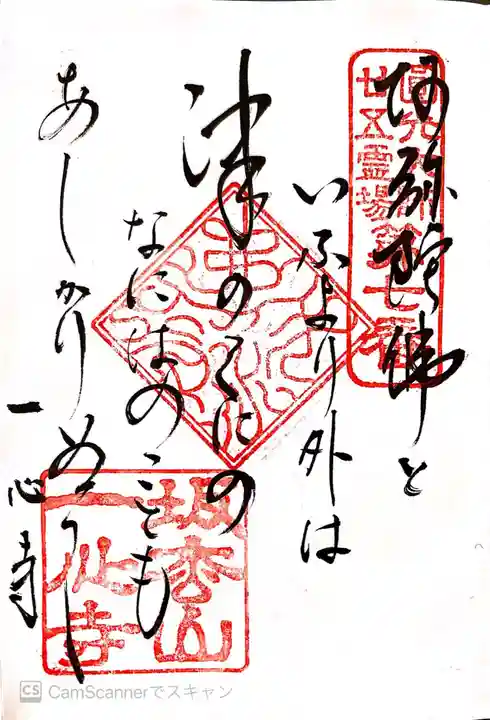 圓光大師
廿五霊場第七番
阿弥陀佛と
いふより外は
津のくにの
なにはのことも
あしかりぬべし
一心寺
坂松山
一心寺
CS CamScannerでスキャン